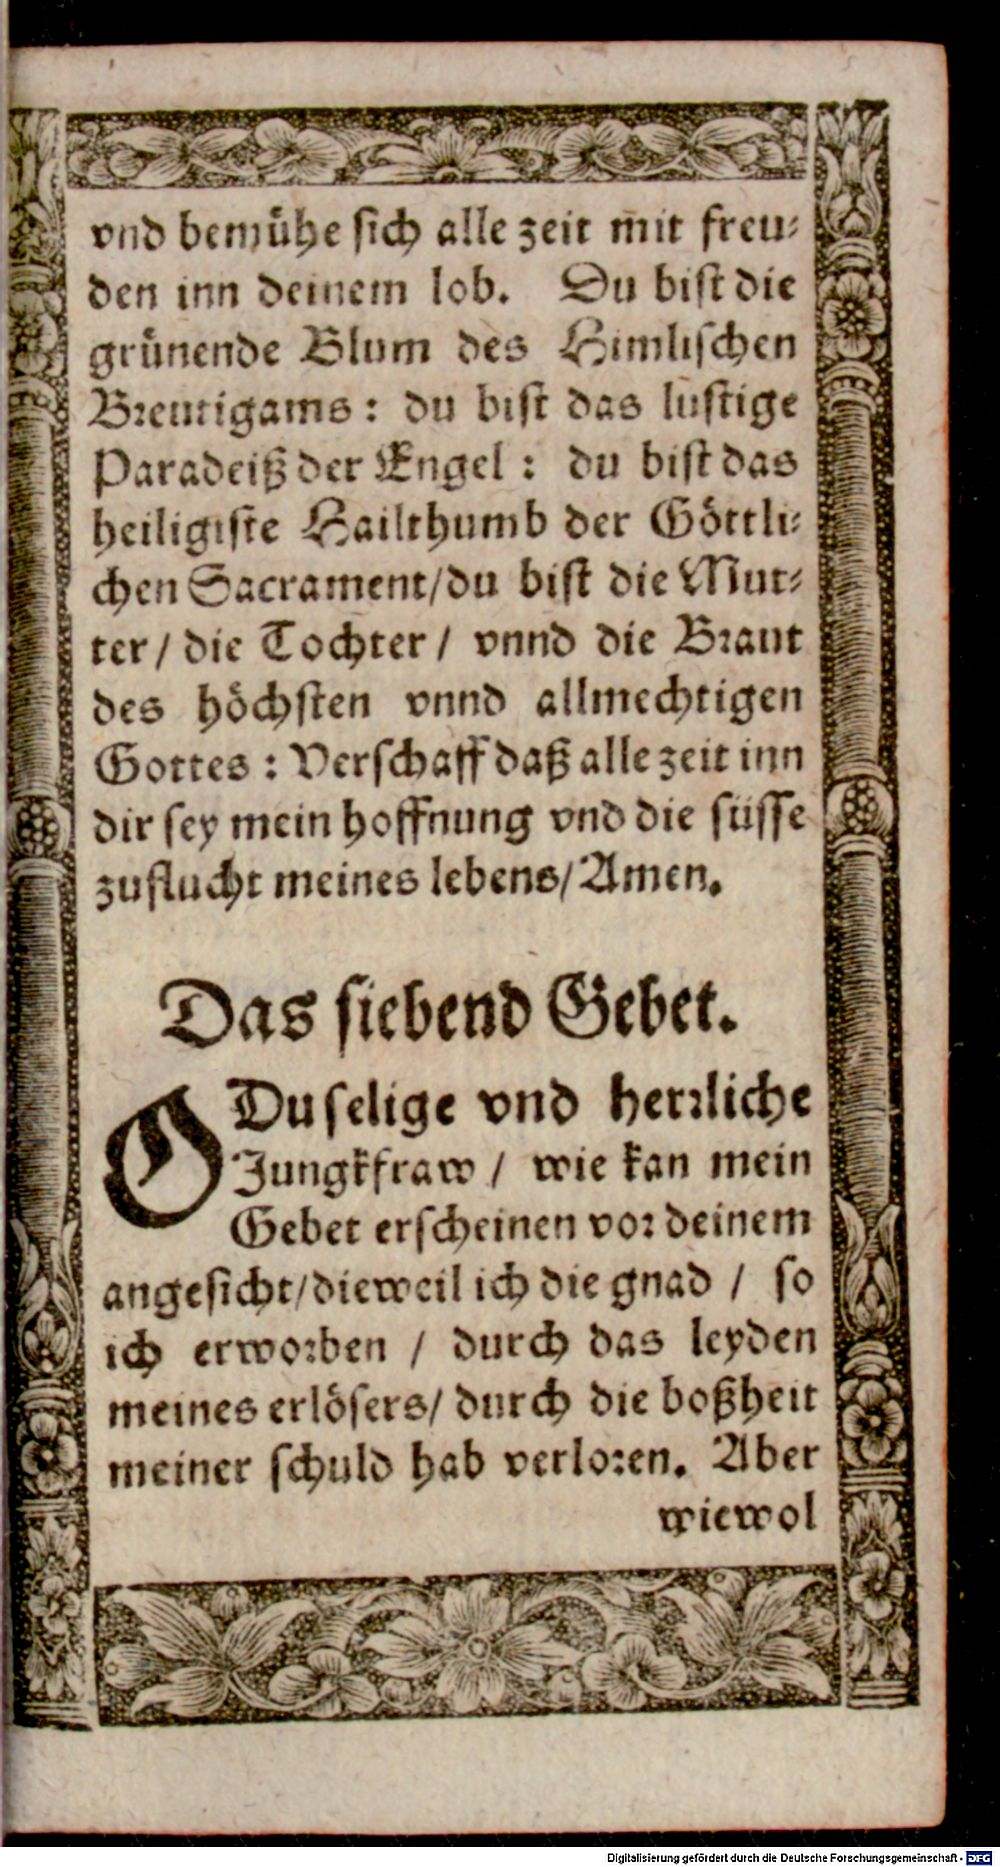 vnd bemühe sich alle zeit mit freu⸗
den inn deinem lob. Du bist die
grünende Blum des Himlischen
Breutigams: du bist das lustige
Paradeiß der Engel: du bist das
heiligiste Hailthumb der Göttli⸗
chen Sacrament/du bist die Mut⸗
ter/ die Tochter/ vnnd die Braut
des höchsten vnnd allmechtigen
Gottes: Verschaff daß alle zeit inn
dir sey mein hoffnung vnd die süsse
zuflucht meines lebens/Amen.
Das siebend Gebet.
O Du selige vnd herrliche
Jungkfraw / wie kan mein
Gebet erscheinen vor deinem
angesicht/dieweil ich die gnad / so
ich erworben / durch das leyden
meines erlösers/ durch die boßheit
meiner schuld hab verloren. Aber
wiewol
Digitalisierung gefördert durch die Deutsche Forschungsgemeinschaft - DFG